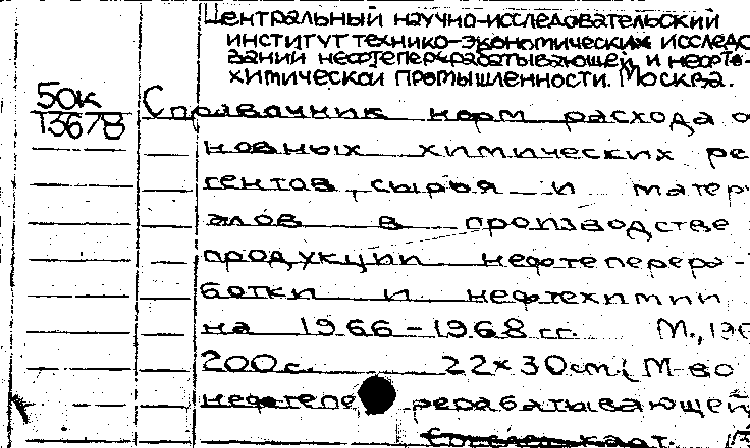 Центральный научно-исследовательский
институт технико-экономических исследо
ваний нефтеперерабатывающей и нефте-
химической промышленности. Москва.
50к
13678
Справочник норм расхода о
новных химических ре
гентов, сырья и матери
алов в производстве
продукции нефтеперера-
ботки и нефтехимии
на 1966-1968 гг. М., 196
200с. 22×30см (М-во
нефтепе рерабатывающей